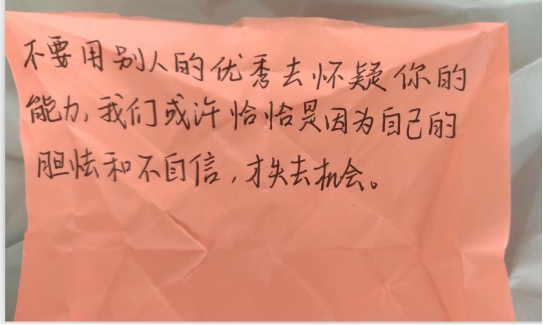 不要用别人的优秀去怀疑你的
能力,我们或许恰恰是因为自己的
胆怯和不自信,才失去机会。